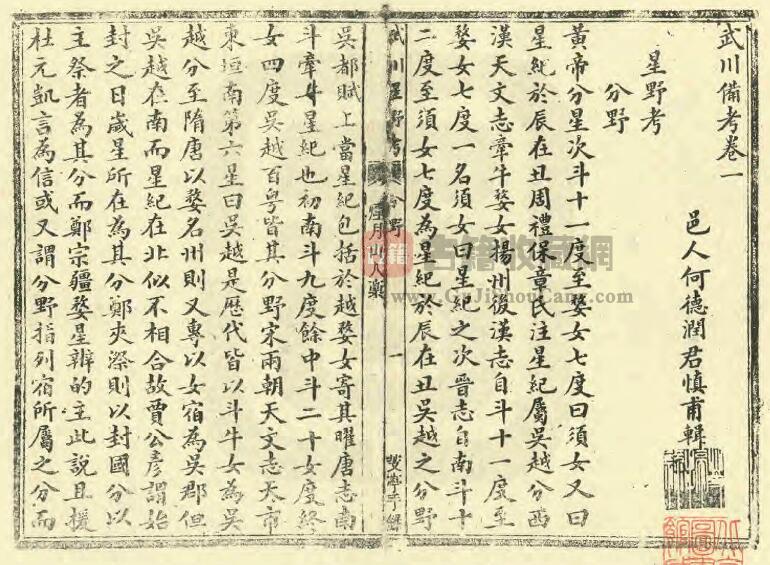 武川備考卷一
邑人何德潤君慎甫輯
星野考
分野
黃帝分星次斗十一度至婺女七度曰須女又曰
星紀於辰在丑周禮保章氏注星紀屬吳越分西
漢天文志牽牛婺女揚州後漢志自斗十一度至
婺女七度一名須女曰星紀之次晉志自南斗十
二度至須女七度為星紀於辰在丑吳越之分野
武川星野考 分野
一
吳都賦上當星紀包括於越婺女寄其曜唐志南
斗牽牛星紀也初南斗九度餘中斗二十女度終
女四度吳越百粵皆其分野宋兩朝天文志天市
東垣南第六星曰吳越是歷代皆以斗牛女為吳
越分至隋唐以婺名州則又專以女宿為吳郡但
吳越在南而星紀在北似不相合故賈公彥謂始
封之日歲星所在為其分鄭夾漈則以封國分以
主祭者為其分而鄭宗疆婺星辨的主此說且援
杜元凱言為信或又謂分野指列宿所屬之分而
古籍收藏網
www.GJishouCang.com